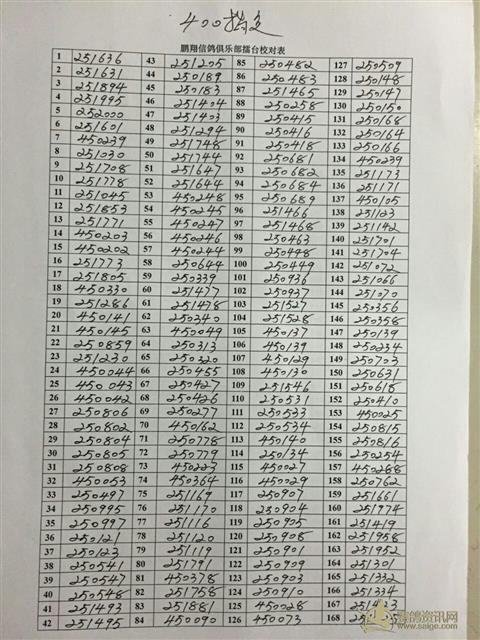 400指定
鹏翔信鸽俱乐部擂台校对表
1 251636 43 251205 85 250482 127 250509
2 251631 44 250189 86 250483 128 250148
3 251894 45 250183 87 251465 129 250147
4 251995 46 251404 88 250258 130 250150
5 252000 47 251403 89 250415 131 250168
6 251601 48 251294 90 250416 132 250164
7 450239 49 251748 91 250418 133 250166
8 251030 50 251744 92 250681 134 450239
9 251708 51 251647 93 250682 135 251173
10 251778 52 251644 94 250684 136 251171
11 251045 53 450248 95 250689 137 450105
12 251853 54 450245 96 251466 138 251123
13 251771 55 450247 97 251468 139 251142
14 450203 56 450246 98 250463 140 251701
15 450202 57 450244 99 250448 141 251704
16 251773 58 250644 100 250449 142 251072
17 251805 59 250339 101 250936 143 251066
18 450330 60 251477 102 250937 144 251070
19 251286 61 251478 103 251527 145 250356
20 450141 62 250340 104 251528 146 250358
21 450145 63 450049 105 450137 147 250139
22 250859 64 250313 106 450139 148 250234
23 251230 65 250320 107 450129 149 250703
24 450044 66 250455 108 450130 150 250631
25 450043 67 250427 109 251546 151 250618
26 450042 68 250426 110 250531 152 250410
27 250806 69 250277 111 250533 153 450025
28 250802 70 450162 112 250534 154 250815
29 250804 71 250778 113 450140 155 250816
30 250805 72 250779 114 250134 156 250254
31 250808 73 450223 115 450027 157 450288
32 450053 74 450364 116 450029 158 250762
33 250497 75 251169 117 250907 159 251661
34 250995 76 251170 118 250904 160 251974
35 250997 77 251116 119 250905 161 251419
36 250121 78 251120 120 250908 162 251958
37 250123 79 251119 121 250901 163 251952
38 250541 80 250791 122 250909 164 251301
39 250547 81 450378 123 250903 165 251332
40 250548 82 251758 124 250910 166 251334
41 251493 83 251881 125 450028 167
42 251495 84 450090 126 450073 168
赛鸽资讯网
www.saige.com